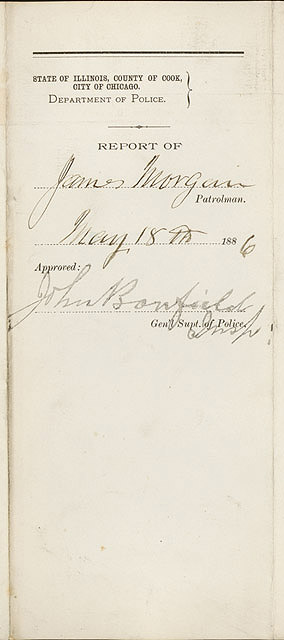 STATE OF ILLINOIS, COUNTY OF COOK,
CITY OF CHICAGO.
DEPARTMENT OF POLICE.
REPORT OF
James Morgan
Patrolman.
May 18th 1886
Approved:
John Bonfield
Gen'l Supt. of Police.
Insp